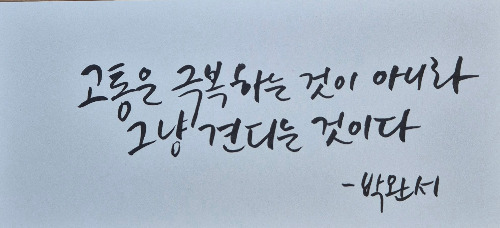 고통은 극복하는 것이 아니라
그냥 견디는 것이다
-박완서